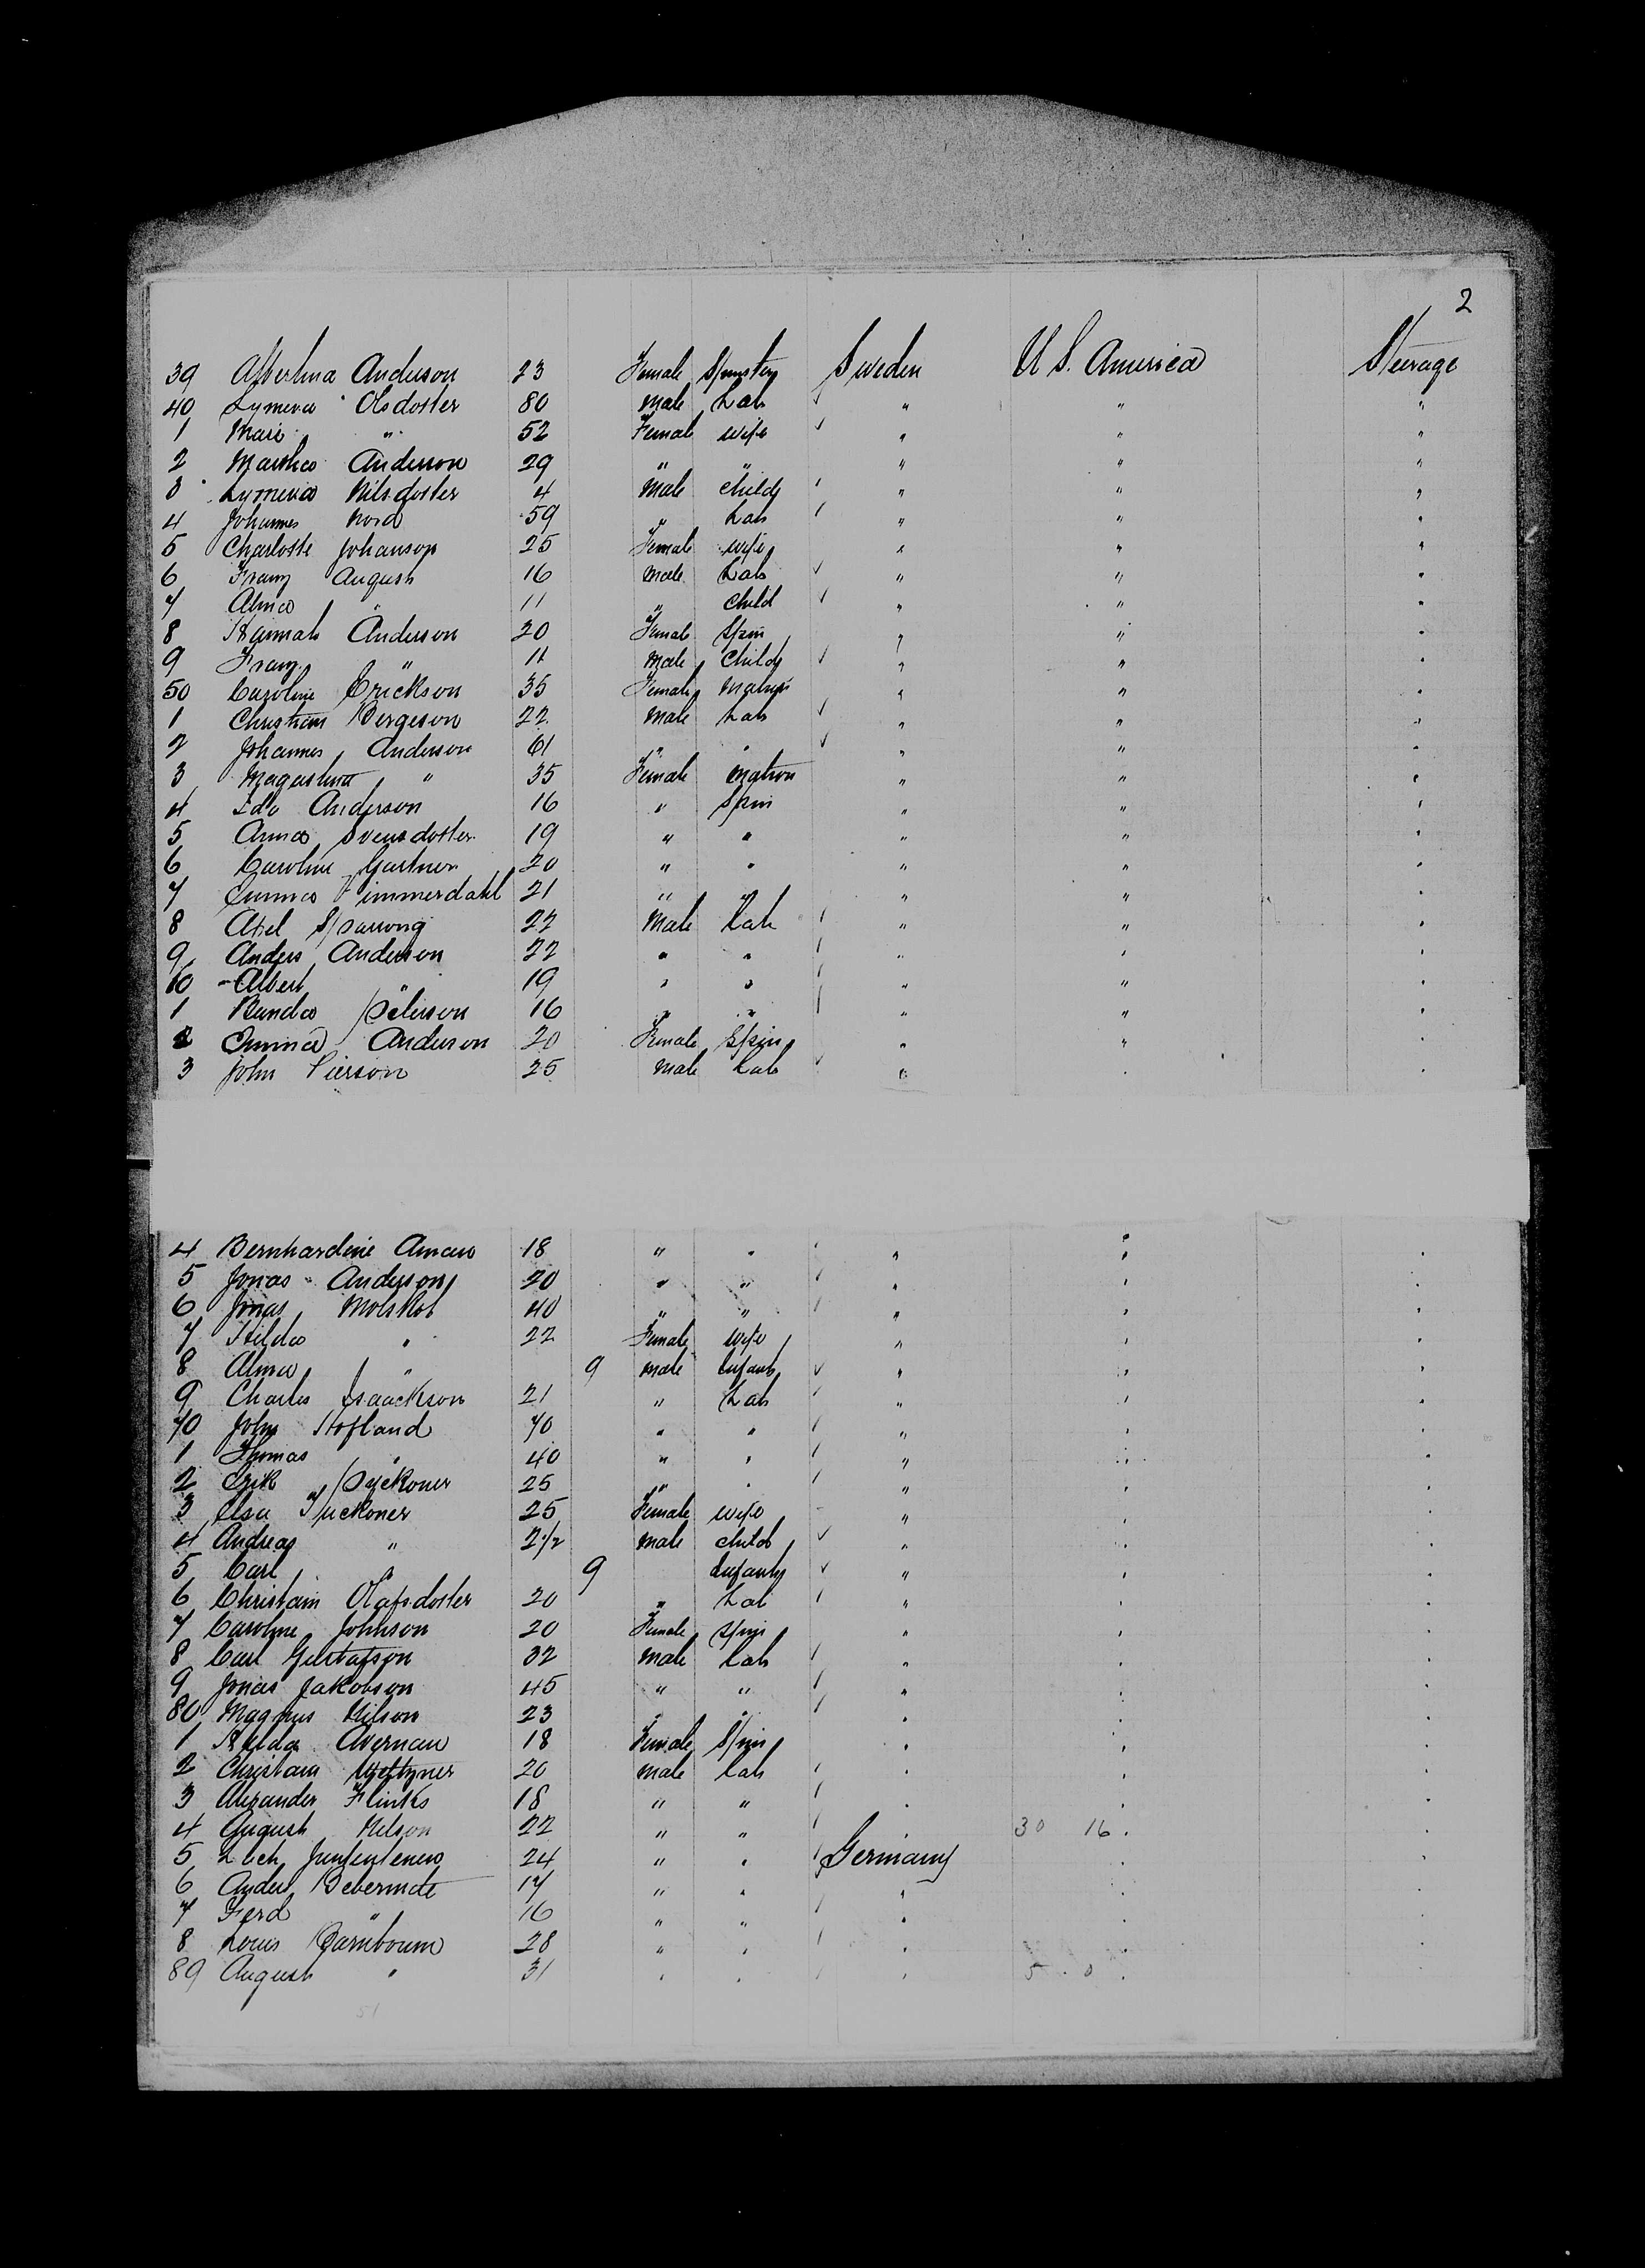 2
39 Albertina Anderson 23 Female Spinster Sweden U S. America Steerage
40 Lymeva Olsdotter 80 Male Lab " " "
1 Mari " 52 Female wife " " "
2 Martha Anderson 29 " " " " "
3 Lymeva Nilsdotter 4 Male Child " " "
4 Johannes Nord 59 " Lab " " "
5 Charlotte Johanson 25 Female wife " " "
6 Franz August 16 Male Lab " " "
7 Alma " 11 " Child " " "
8 Hannah Anderson 20 Female Spin " " "
9 Franz " 11 Male Child " " "
50 Caroline Erickson 35 Female Matron " " "
1 Christian Bergeson 22 Male Lab " " "
2 Johannes Anderson 61 " " " " "
3 " 35 Female Matron " " "
4 Ida Anderson 16 " Spin " " "
5 Anna Svensdotter 19 " " " " "
6 Caroline Gartner 20 " " " " "
7 Emma Timmerdahl 21 " " " " "
8 Abel Sparrong 22 Male Lab " " "
9 Anders Anderson 22 " " " " "
60 Albert " 19 " " " " "
1 Banda Peterson 16 " " " " "
2 Emma Anderson 20 Female Spin " " "
3 John Pierson 25 Male Lab " " "
4 Bernhardine Aman 18 " " " " "
5 Jonas Anderson 20 " " " " "
6 Jonas Molskot 40 " " " " "
7 Hilda " 22 Female wife " " "
8 Alma " 9 Male Infant " " "
9 Charles Isaackson 21 " Lab " " "
70 John Hofland 70 " " " " "
1 Thomas " 40 " " " " "
2 Erik Puckoner 25 " " " " "
3 Elsa Puckoner 25 Female wife " " "
4 Andreas " 2 1/2 Male child " " "
5 Carl " 9 Infant " " "
6 Christain Olafsdotter 20 " Lab " " "
7 Caroline Johnson 20 Female Spin " " "
8 Carl Gustafson 32 Male Lab " " "
9 Jonas Jakobson 45 " " " " "
80 Magnus Nilson 23 " " " " "
1 Hilda Avernau 18 Female Spin " " "
2 Christain 20 Male Lab " " "
3 Alexander Flinks 18 " " " " "
4 August Nelson 22 " " " 30 16 " "
5 24 " " Germany " "
6 Anders Bebermete 17 " " " " "
7 Ferd " 16 " " " " "
8 Louis Barnboum 28 " " " " "
89 August " 31 " " " 5 0 " "
51